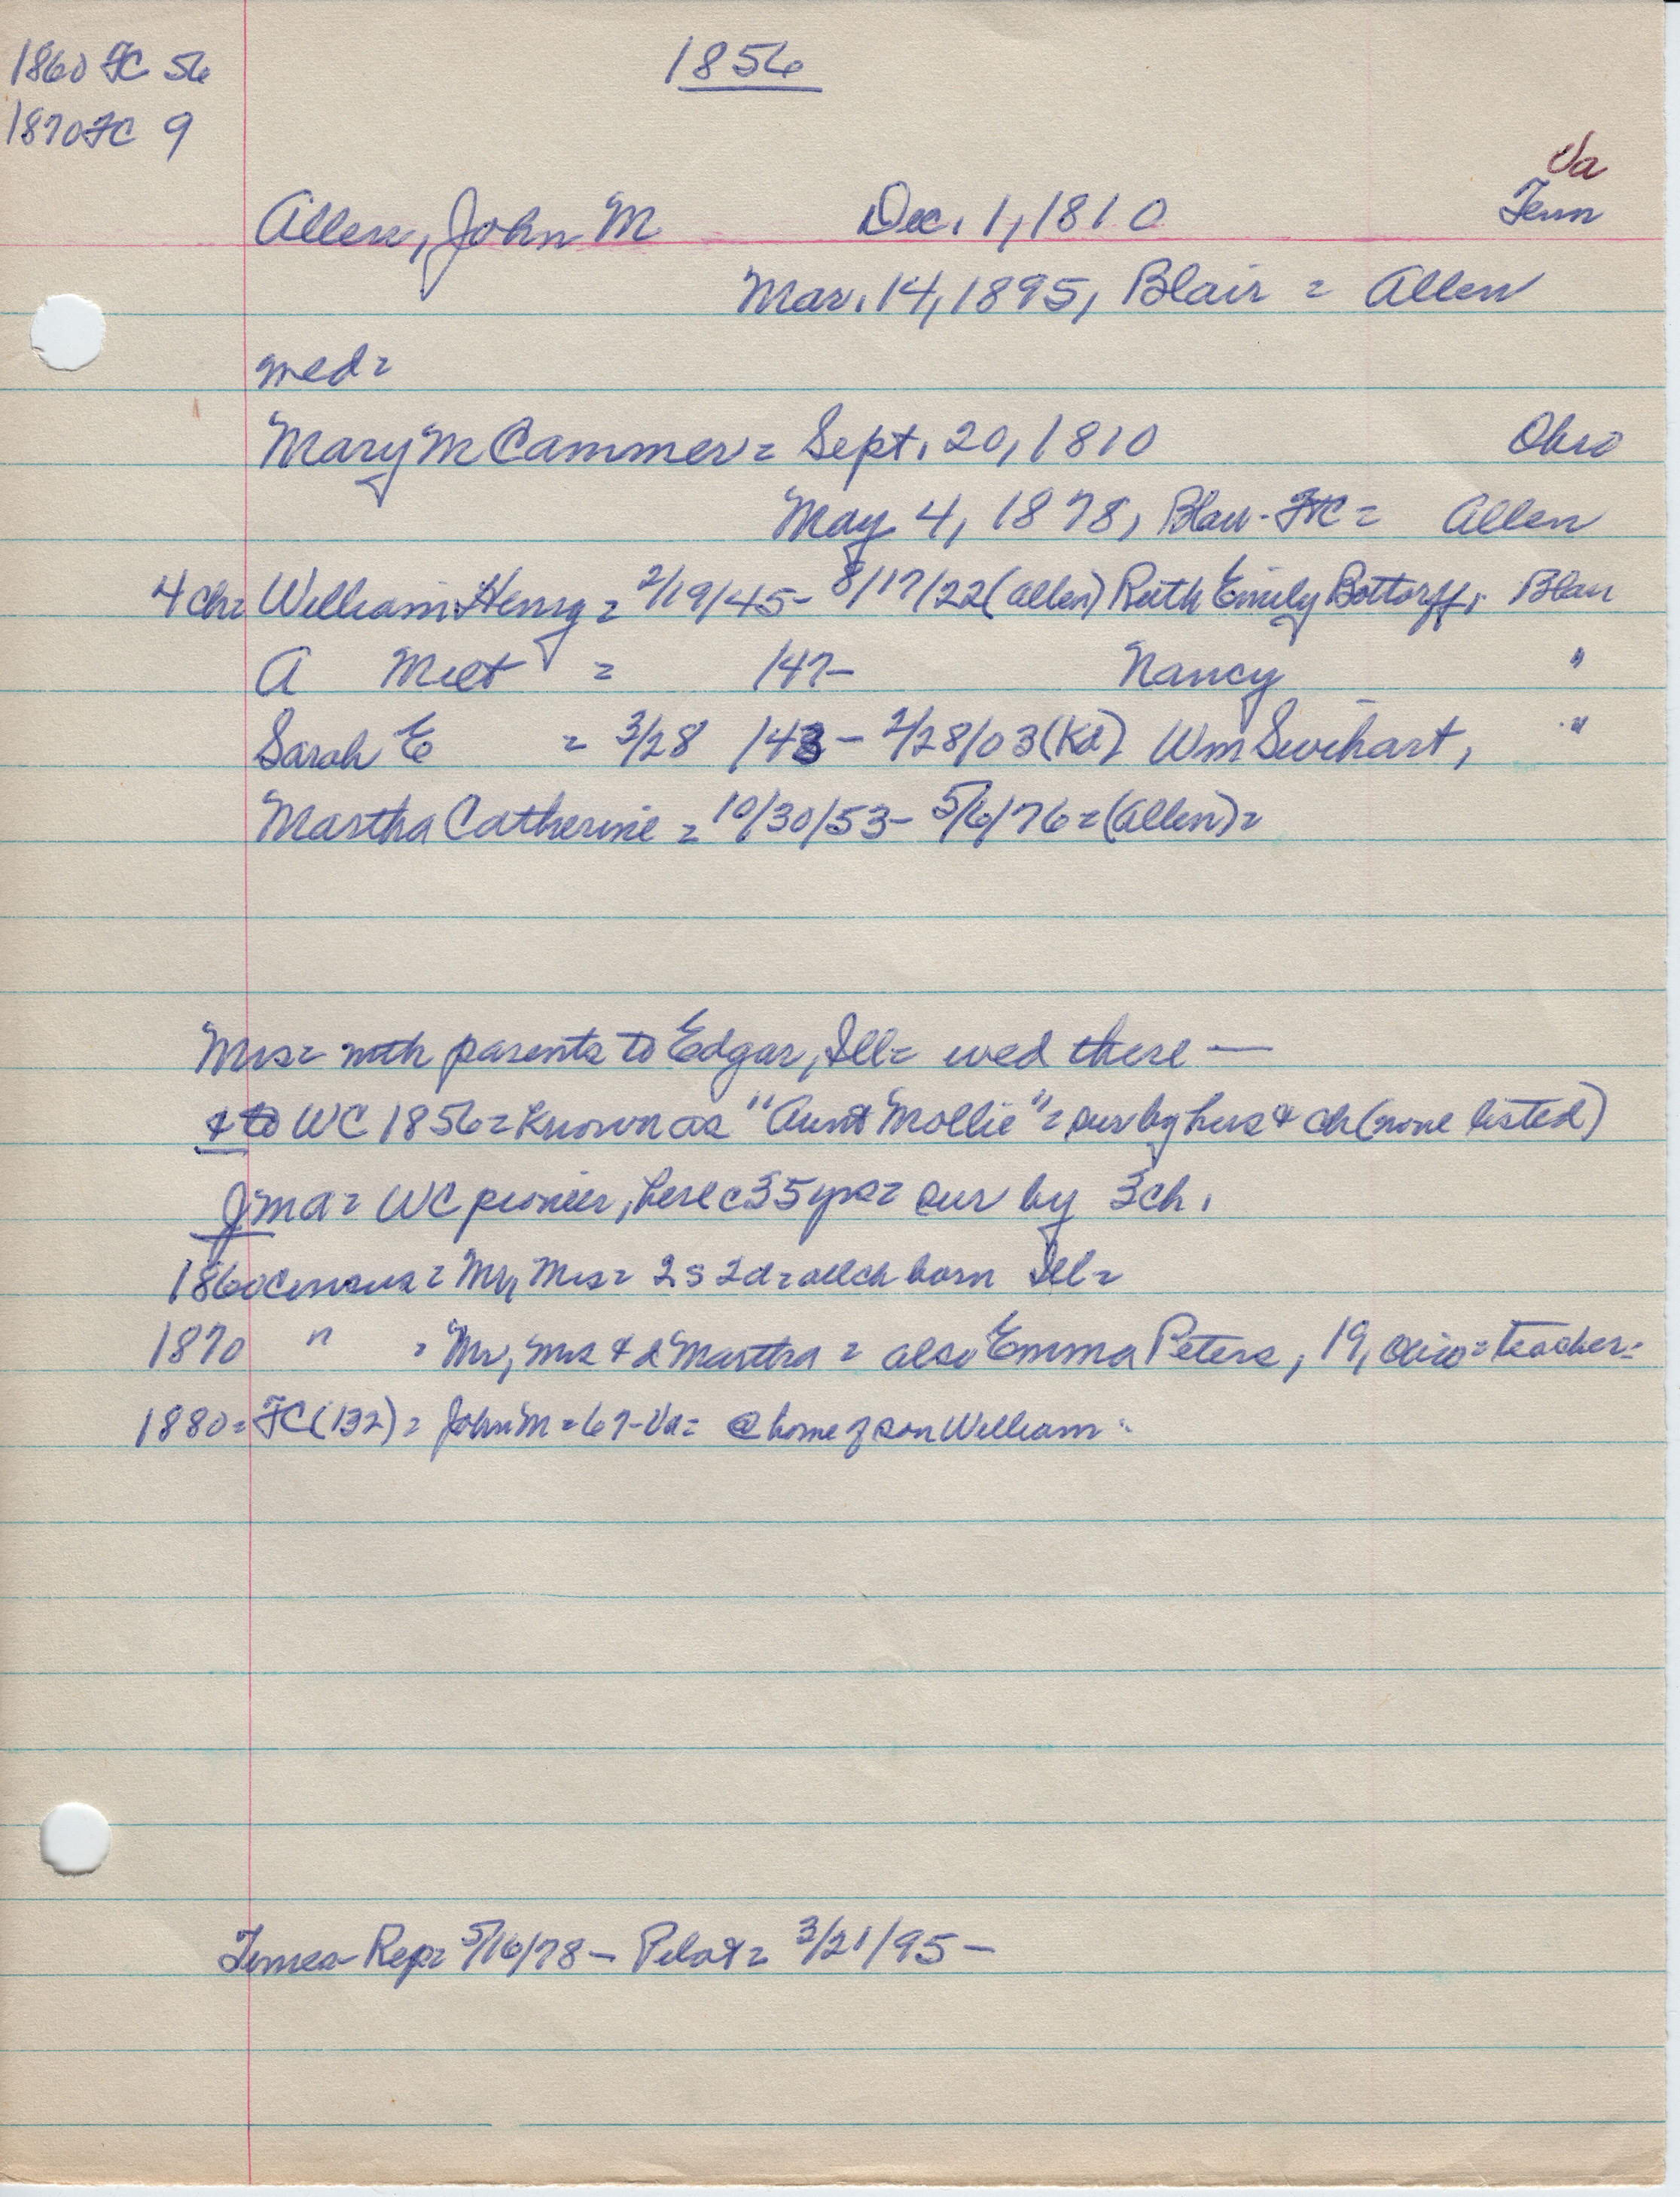 1860 FC 56
1856
1870 FC 9
Va
Allen, John M Dec. 1, 1810 Tenn
Mar. 14, 1895, Blair = Allen
med =
Mary M Cammer = Sept. 20, 1810 Ohio
May 4, 1878, Blair - FC = Allen
4 ch = William Henry = 2/19/45 - 8/17/22 (Allen) Ruth Emily Bottorff, Blair
A Milt = /47 - Nancy "
Sarah E = 3/28 /43 - 2/28/03 (Kd) Wm Swihart, "
Martha Catherine = 10/30/53 - 5/6/76 = (Allen) =
Mrs = with parents to Edgar, Ill = wed there —
& to WC 1856 = Known as "Aunt Mollie" = sur by hus & ch (none listed)
JMA = WC pioneer, here c 35 yrs = sur by 3 ch.
1860 census = Mr, Mrs = 2s 2d = all ch born Ill =
1870 " = Mr, Mrs & d Martha = also Emma Peters, 19, Ohio = teacher =
1880 = FC (132) = John M = 67 - Va = @ home of son William -
Times-Rep = 5/16/78 - Pilot = 3/21/95 -